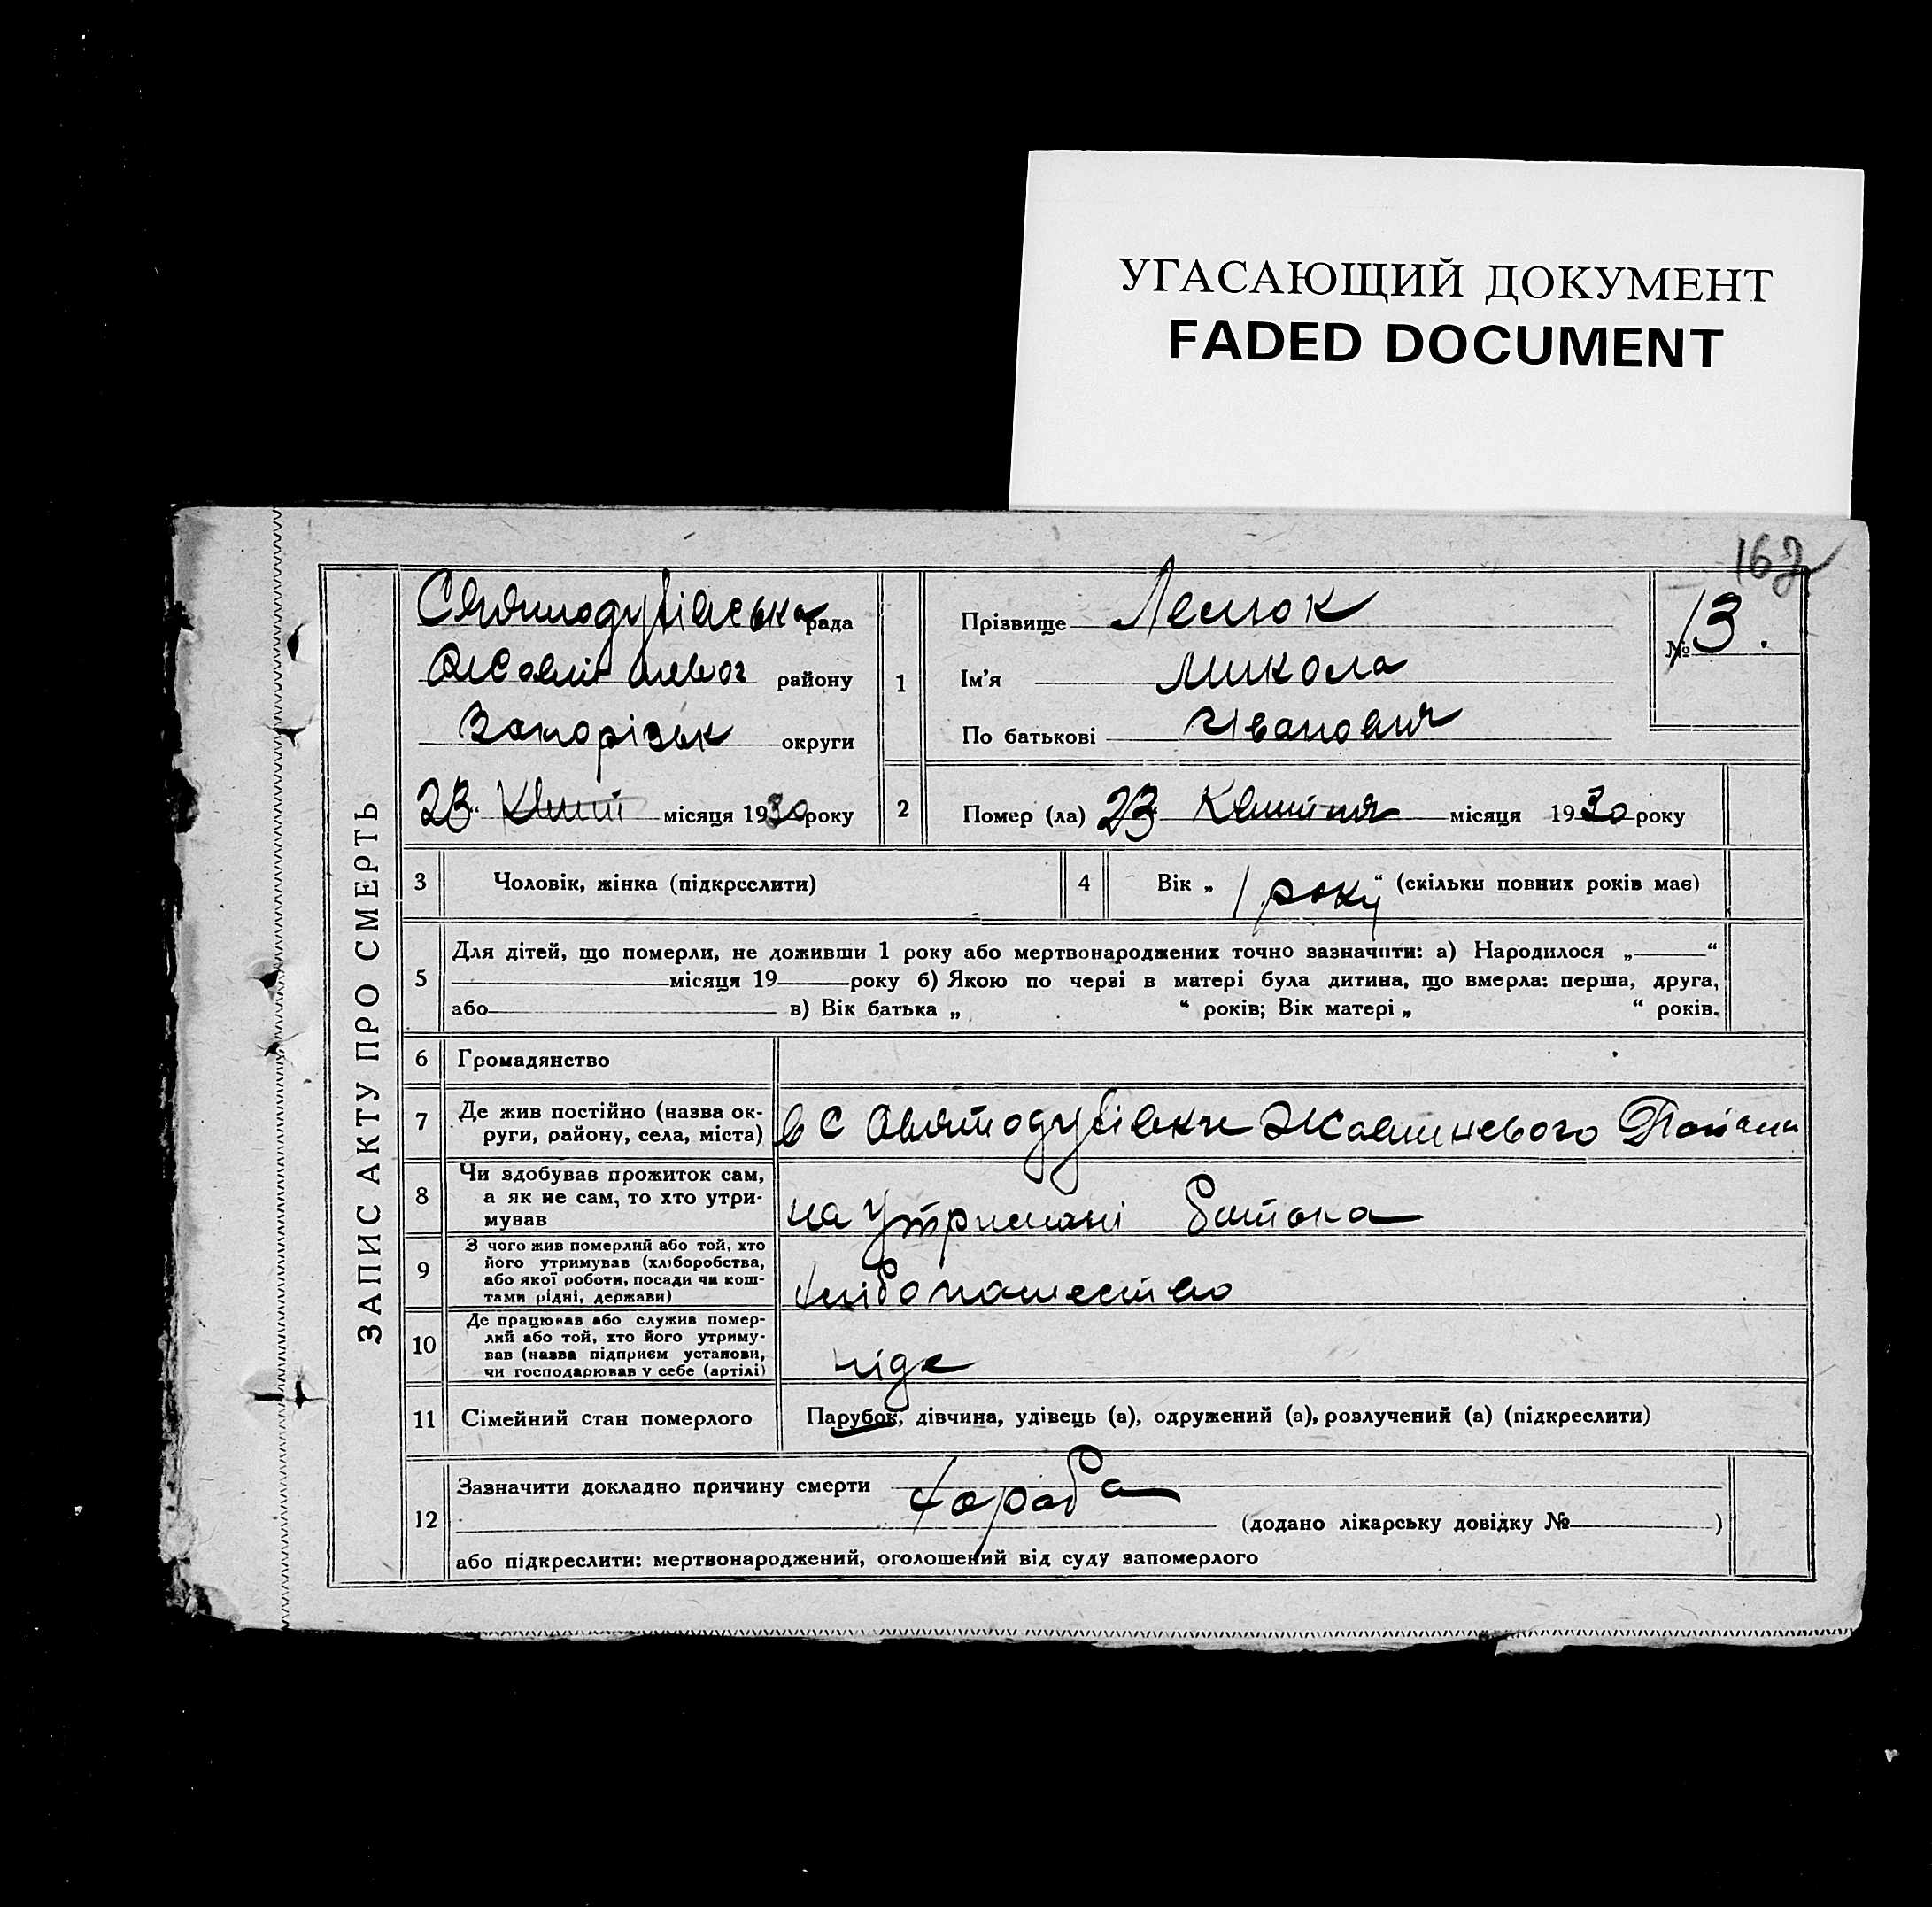 УГАСАЮЩИЙ ДОКУМЕНТ
FADED DOCUMENT
162
ЗАПИС АКТУ ПРО СМЕРТЬ
Святодухівська рада
району
Запорізьк округи
23 “ Квіт місяця 1930 року
1
Прізвище
Ім’я Микола
По батькові Іванович
№ 13.
2 Помер (ла) 23 Квітня місяця 1930 року
3 Чоловік, жінка (підкреслити)
4 Вік „ 1 року “ (скільки повних років має)
5 Для дітей, що померли, не доживши 1 року або мертвонароджених точно зазначити: а) Народилося „ “
місяця 19 року б) Якою по черзі в матері була дитина, що вмерла: перша, друга,
або в) Вік батька „ “ років; Вік матері „ “ років.
6 Громадянство
7 Де жив постійно (назва ок-
руги, району, села, міста) в С Святодухівки Жовтневого Району
8 Чи здобував прожиток сам,
а як не сам, то хто утри-
мував на утримані батька
9 З чого жив померлий або той, хто
його утримував (хліборобства,
або якої роботи, посади чи кош-
тами рідні, держави) хлібопашество
10 Де працював або служив помер-
лий або той, хто його утриму-
вав (назва підприєм установи,
чи господарював у себе (артілі) нідε
11 Сімейний стан померлого Парубок, дівчина, удівець (а), одружений (а), розлучений (а) (підкреслити)
12 Зазначити докладно причину смерти
(додано лікарську довідку № )
або підкреслити: мертвонароджений, оголошений від суду запомерлого